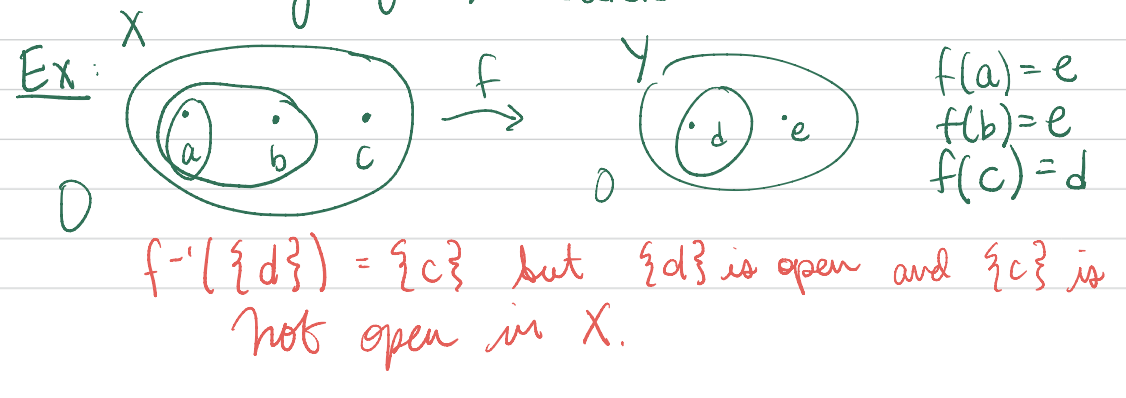 X
Ex:
a b c
O
f
Y
d e
O
f(a) = e
f(b) = e
f(c) = d
f⁻¹({d}) = {c} but {d} is open and {c} is
not open in X.